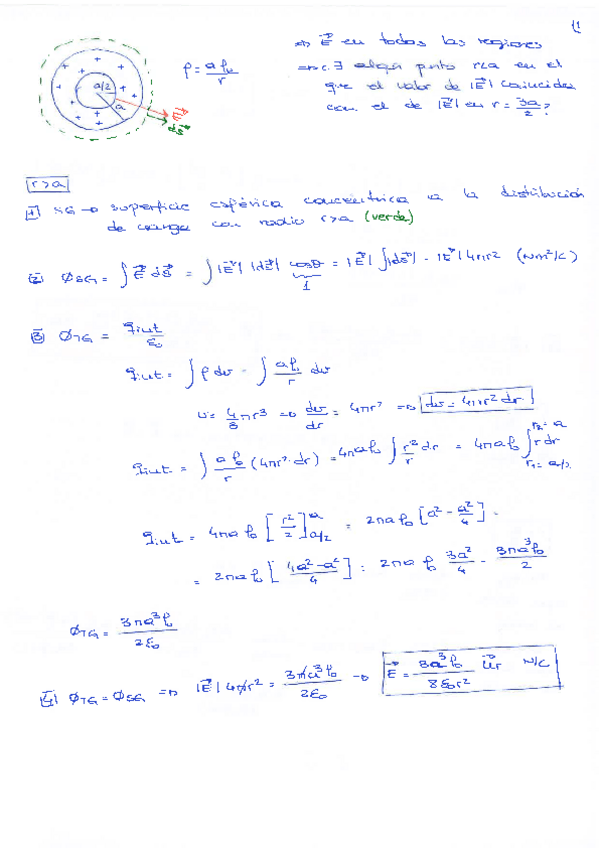 1
⇒ E⃗ en todas las regiones
⇒ c. ∃ algún punto r<a en el
que el valor de |E⃗| coincida
con el de |E⃗| en r = 3a/2?
ρ = aρ₀/r
a/2
a
E⃗
dS⃗
r>a
1 SG → superficie esférica concéntrica a la distribución
de carga con radio r>a (verde)
2 ϕSG = ∫ E⃗ dS⃗ = ∫ |E⃗| |dS⃗| cosθ = |E⃗| ∫ |dS⃗| = |E⃗| 4πr² (Nm²/C)
1
3 ϕTG = qint/ε₀
qint = ∫ ρ dv = ∫ aρ₀/r dv
v = 4/3 πr³ ⇒ dv/dr = 4πr² ⇒ dv = 4πr² dr
qint = ∫ aρ₀/r (4πr² dr) = 4πaρ₀ ∫ r²/r dr = 4πaρ₀ ∫ r dr
r₂ = a
r₁ = a/2
qint = 4πaρ₀ [r²/2] a a/2 = 2πaρ₀ [a² - a²/4] =
= 2πaρ₀ [4a² - a²/4] = 2πaρ₀ 3a²/4 = 3πa³ρ₀/2
ϕTG = 3πa³ρ₀/2ε₀
4 ϕTG = ϕSG ⇒ |E⃗| 4πr² = 3πa³ρ₀/2ε₀ → E⃗ = 3a³ρ₀/8ε₀r² u⃗r N/C